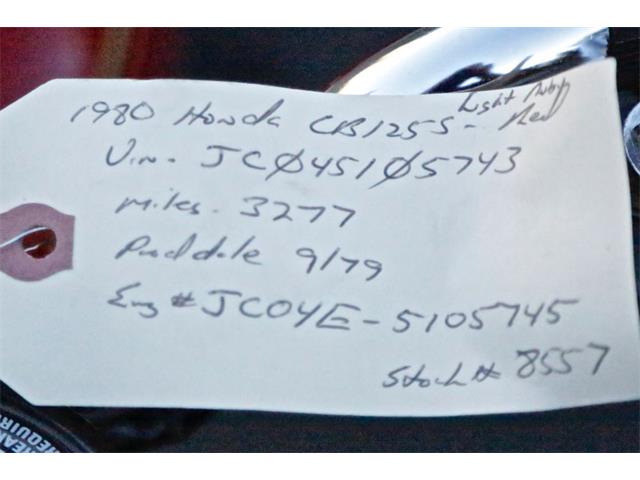 1980 Honda CB125S - Light Ruby Red
Vin. JCØ451Ø5743
Miles. 3277
Prod date 9/79
Eng # JC04E-5105745
Stock # 8557